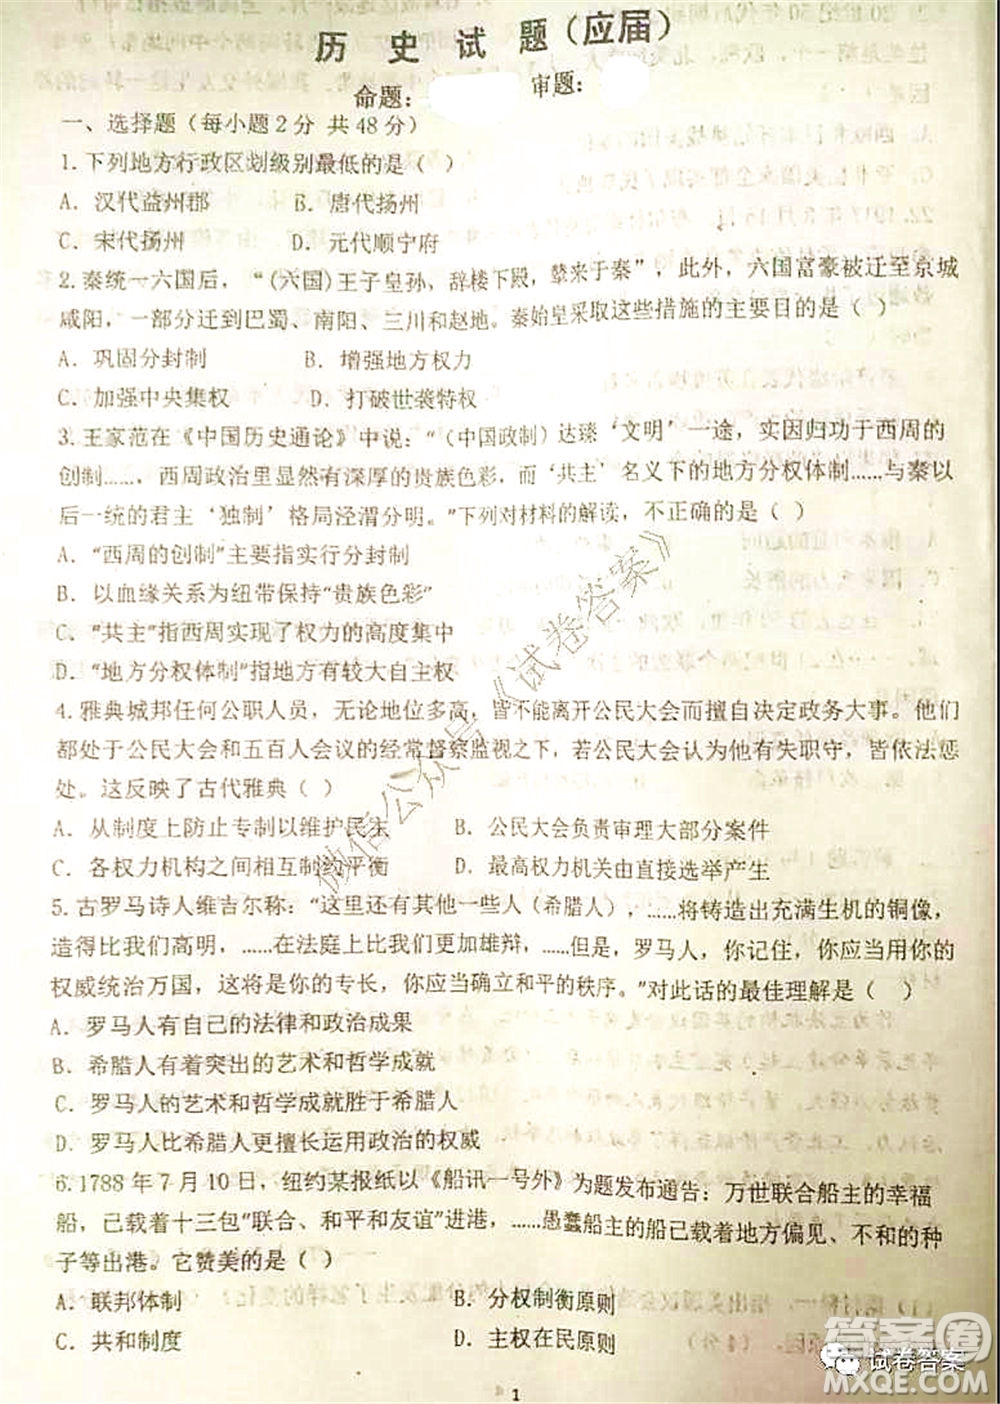 历 史 试 题（应届）
命题： 审题：
一、选择题（每小题2分 共48分）
1.下列地方行政区划级别最低的是（ ）
A．汉代益州郡 B．唐代扬州
C．宋代扬州 D．元代顺宁府
2.秦统一六国后，“(六国)王子皇孙，辞楼下殿，辇来于秦”，此外，六国富豪被迁至京城
咸阳，一部分迁到巴蜀、南阳、三川和赵地。秦始皇采取这些措施的主要目的是（ ）
A．巩固分封制 B．增强地方权力
C．加强中央集权 D．打破世袭特权
3.王家范在《中国历史通论》中说：“（中国政制）达臻‘文明’一途，实因归功于西周的
创制……，西周政治里显然有深厚的贵族色彩，而‘共主’名义下的地方分权体制……与秦以
后一统的君主‘独制’格局泾渭分明。”下列对材料的解读，不正确的是（ ）
A．“西周的创制”主要指实行分封制
B．以血缘关系为纽带保持“贵族色彩”
C．“共主”指西周实现了权力的高度集中
D．“地方分权体制”指地方有较大自主权
4.雅典城邦任何公职人员，无论地位多高，皆不能离开公民大会而擅自决定政务大事。他们
都处于公民大会和五百人会议的经常督察监视之下，若公民大会认为他有失职守，皆依法惩
处。这反映了古代雅典（ ）
A．从制度上防止专制以维护民主 B．公民大会负责审理大部分案件
C．各权力机构之间相互制约平衡 D．最高权力机关由直接选举产生
5.古罗马诗人维吉尔称：“这里还有其他一些人（希腊人），……将铸造出充满生机的铜像，
造得比我们高明，……在法庭上比我们更加雄辩，……但是，罗马人，你记住，你应当用你的
权威统治万国，这将是你的专长，你应当确立和平的秩序。”对此话的最佳理解是（ ）
A．罗马人有自己的法律和政治成果
B．希腊人有着突出的艺术和哲学成就
C．罗马人的艺术和哲学成就胜于希腊人
D．罗马人比希腊人更擅长运用政治的权威
6.1788年7月10日，纽约某报纸以《船讯一号外》为题发布通告：万世联合船主的幸福
船，已载着十三包“联合、和平和友谊”进港，……愚蠢船主的船已载着地方偏见、不和的种
子等出港。它赞美的是（ ）
A．联邦体制 B．分权制衡原则
C．共和制度 D．主权在民原则
1
微信公众号《试卷答案》
答案圈
试卷答案
MXQE.COM